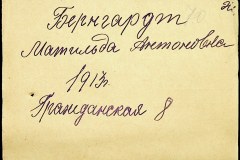 Бернгардт
Матильда Антоновна
1913г.
Гражданская 8